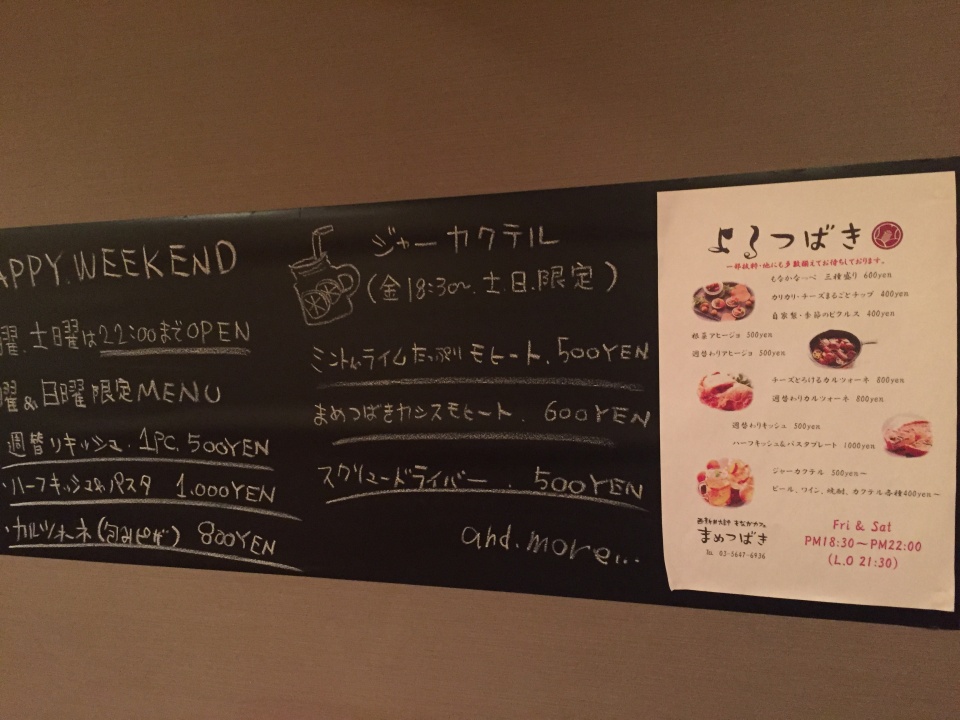 APPY.WEEKEND
曜.土曜は22:00までOPEN
曜&日曜限定MENU
週替りキッシュ.1PC.500YEN
・ハーフキッシュ&パスタ 1.000YEN
・カルツォーネ(包みピザ) 800YEN
ジャーカクテル
(金18:30〜.土.日.限定)
ミント&ライムたっぷりモヒート.500YEN
まめつばきカシスモヒート. 600YEN
スクリュードライバー 500YEN
and.more...
よるつばき
一部抜粋・他にも多数揃えてお待ちしております。
もなかなっぺ 三種盛り 600yen
カリカリ・チーズまるごとチップ 400yen
自家製・季節のピクルス 400yen
根菜アヒージョ 500yen
週替わりアヒージョ 500yen
チーズとろけるカルツォーネ 800yen
週替わりカルツォーネ 800yen
週替わりキッシュ 500yen
ハーフキッシュ&パスタプレート 1000yen
ジャーカクテル 500yen〜
ビール、ワイン、焼酎、カクテル各種400yen〜
西新井大師 もなかカフェ
まめつばき
℡ 03-5647-6936
Fri & Sat
PM18:30〜PM22:00
(L.O 21:30)